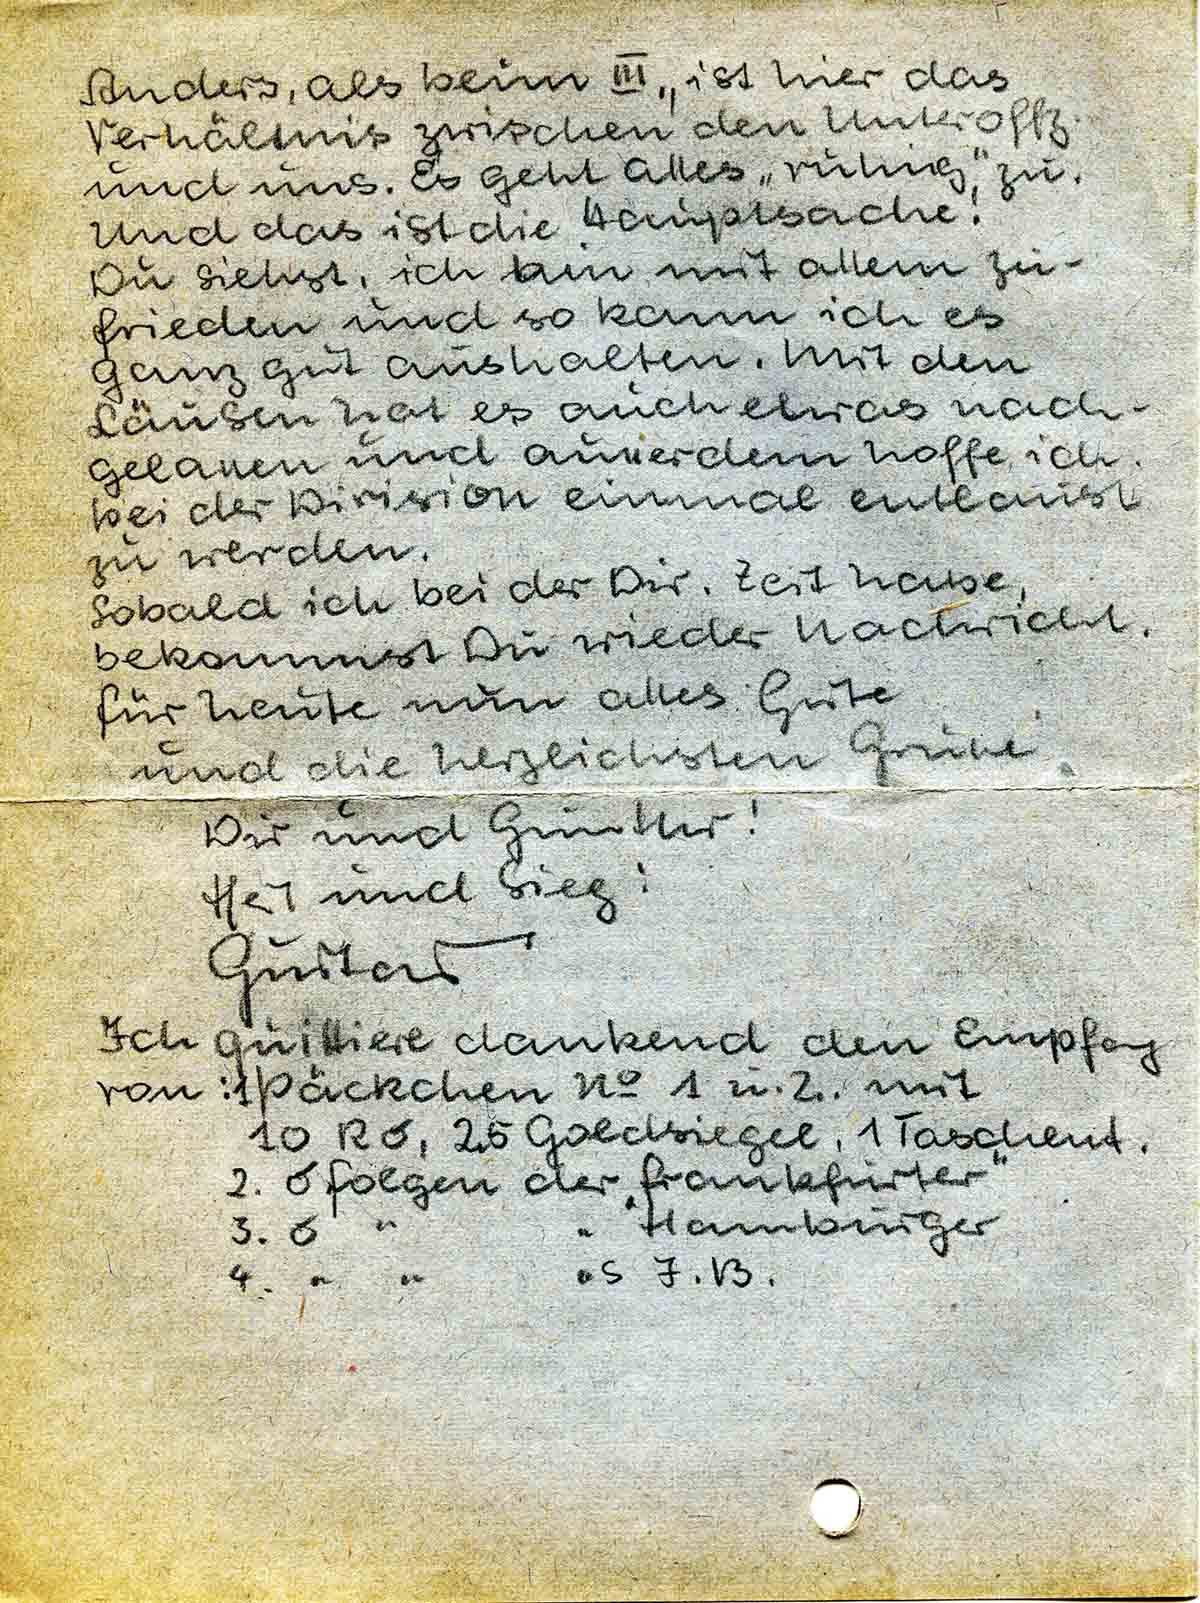 Anders, als beim III., ist hier das
Verhältnis zwischen den Unteroffz.
und uns. Es geht alles „ruhig" zu.
Und das ist die Hauptsache!
Du siehst, ich bin mit allem zu-
frieden und so kann ich es
ganz gut aushalten. Mit den
Läusen hat es auch etwas nach-
gelassen und ausserdem hoffe ich,
bei der Division einmal entlaust
zu werden.
Sobald ich bei der Div. Zeit habe,
bekommst Du wieder Nachricht.
Für heute nun alles Gute
und die herzlichsten Grüße
Dir und Günther!
Heil und Sieg!
Gustav
Ich quittiere dankend den Empfang
von: 1 Päckchen No 1 u. 2. mit
10 R6, 25 Goldsiegel, 1 Taschent.
2. 6 Folgen der Frankfurter"
3. 6 " " "Hamburger
4. " " "s J.B.